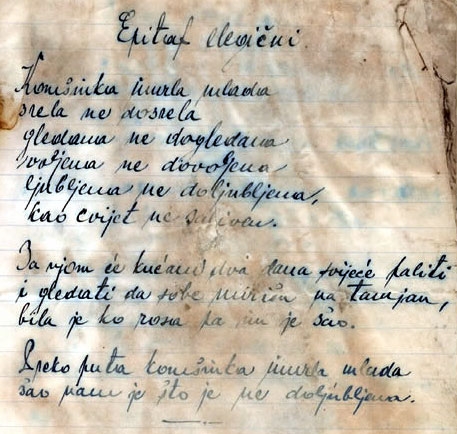 Epitaf elegični.
Komšinka umrla mlada
srela ne dosrela
gledana ne dogledana
voljena ne dovoljena
ljubljena ne doljubljena,
kao cvijet ne saliven.
Za njom će kućani dva dana svijeće paliti
i gledati da sobe mirišu na tamjan,
bila je ko rosa pa im je žao.
Preko puta komšinka umrla mlada
žao nam je što je ne doljubljena.